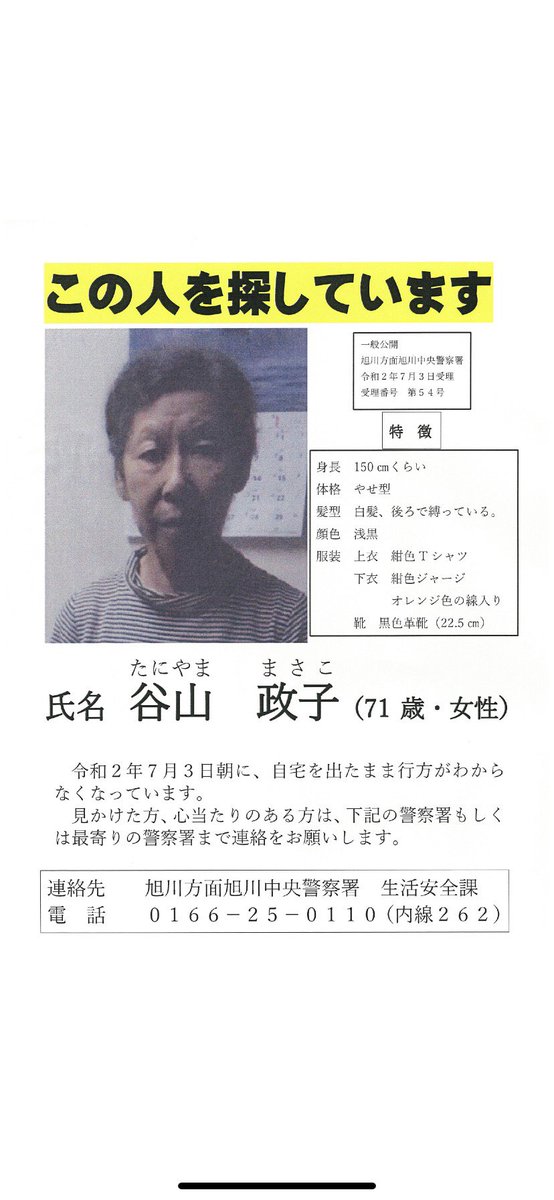 この人を探しています
一般公開
旭川方面旭川中央警察署
令和２年７月３日受理
受理番号　第５４号
特　徴
身長　150㎝くらい
体格　やせ型
髪型　白髪、後ろで縛っている。
顔色　浅黒
服装　上衣　紺色Ｔシャツ
下衣　紺色ジャージ
オレンジ色の線入り
靴　黒色革靴（22.5㎝）
たにやま　まさこ
氏名　谷山　政子（71 歳・女性）
令和２年７月３日朝に、自宅を出たまま行方がわから
なくなっています。
見かけた方、心当たりのある方は、下記の警察署もしく
は最寄りの警察署まで連絡をお願いします。
連絡先　旭川方面旭川中央警察署　生活安全課
電　話　０１６６－２５－０１１０（内線２６２）